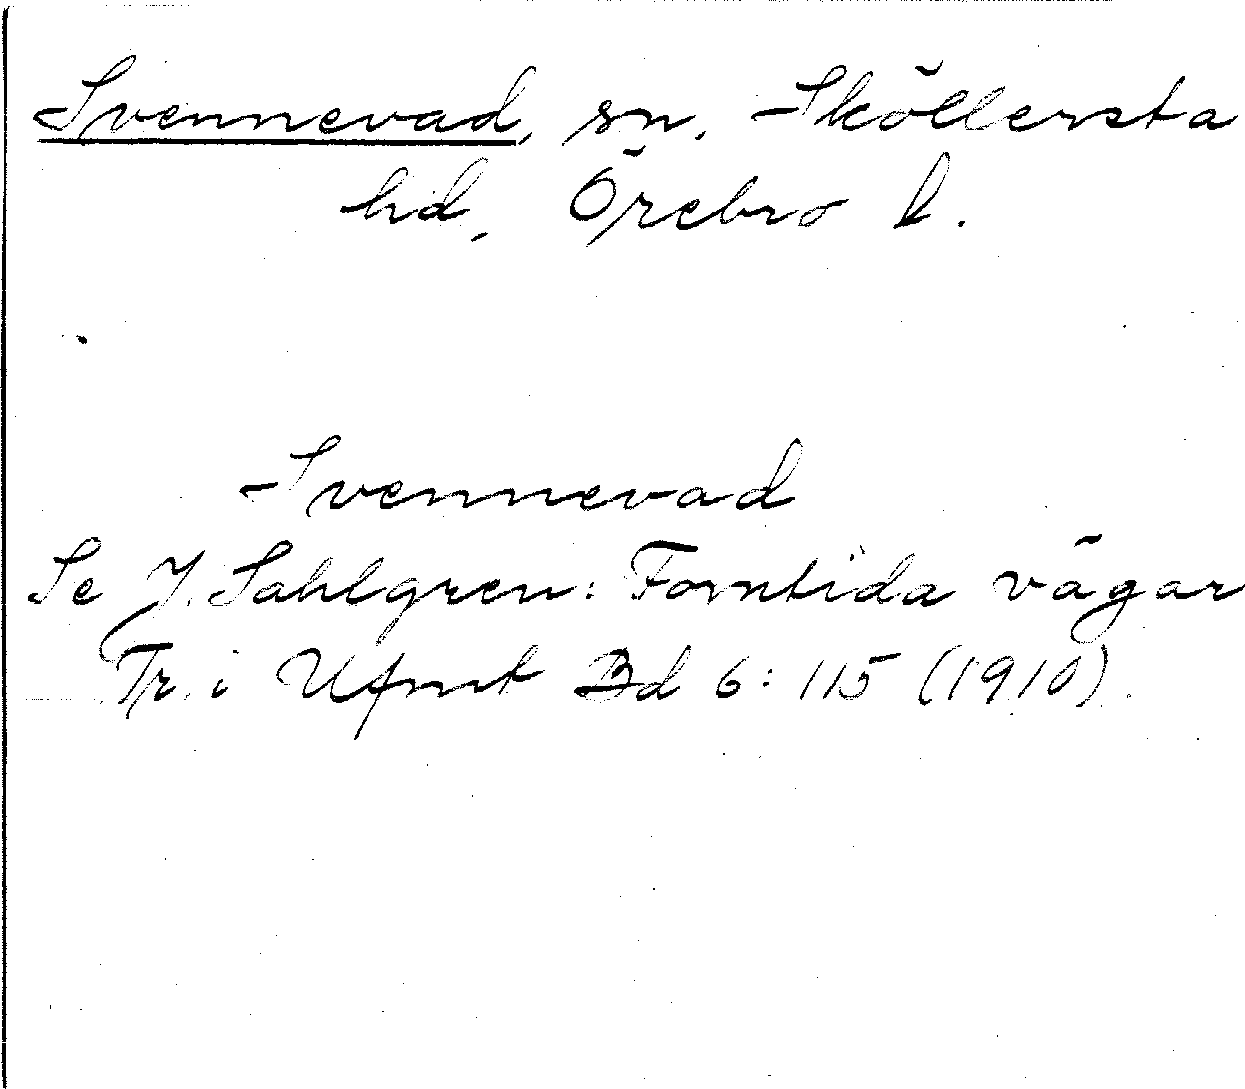 Svennevad, sn. Sköllersta
hd, Örebro l.
Svennevad
Se J. Sahlgren: Forntida vägar
Tr. i Ufmt Bd 6: 115 (1910).